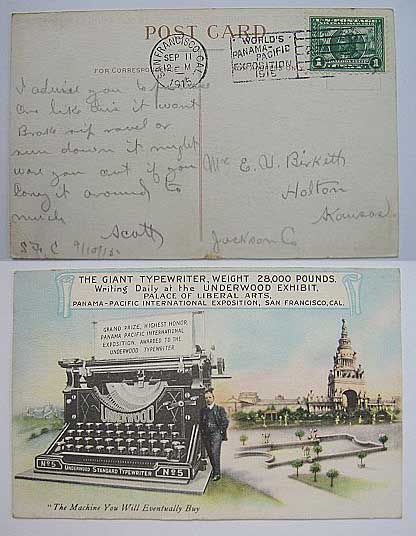 POST CARD
FOR CORRESPONDENCE
SAN FRANCISCO, CAL.
SEP 11
12 - M
1915
WORLD'S
PANAMA-PACIFIC
EXPOSITION
1915
U.S. POSTAGE
1 1
I advise you to
one like this it wont
Break rip ravel or
run down it might
wear you out if you
long it around to
much
Scott
S.F. C 9/10/15
Mr E. U. Birkitt
Holton
Kansas
Jackson Co
THE GIANT TYPEWRITER, WEIGHT 28,000 POUNDS.
Writing Daily at the UNDERWOOD EXHIBIT,
PALACE OF LIBERAL ARTS,
PANAMA-PACIFIC INTERNATIONAL EXPOSITION, SAN FRANCISCO, CAL.
GRAND PRIZE, HIGHEST HONOR,
PANAMA PACIFIC INTERNATIONAL
EXPOSITION, AWARDED TO THE
UNDERWOOD TYPEWRITER
No 5 UNDERWOOD STANDARD TYPEWRITER No 5
"The Machine You Will Eventually Buy